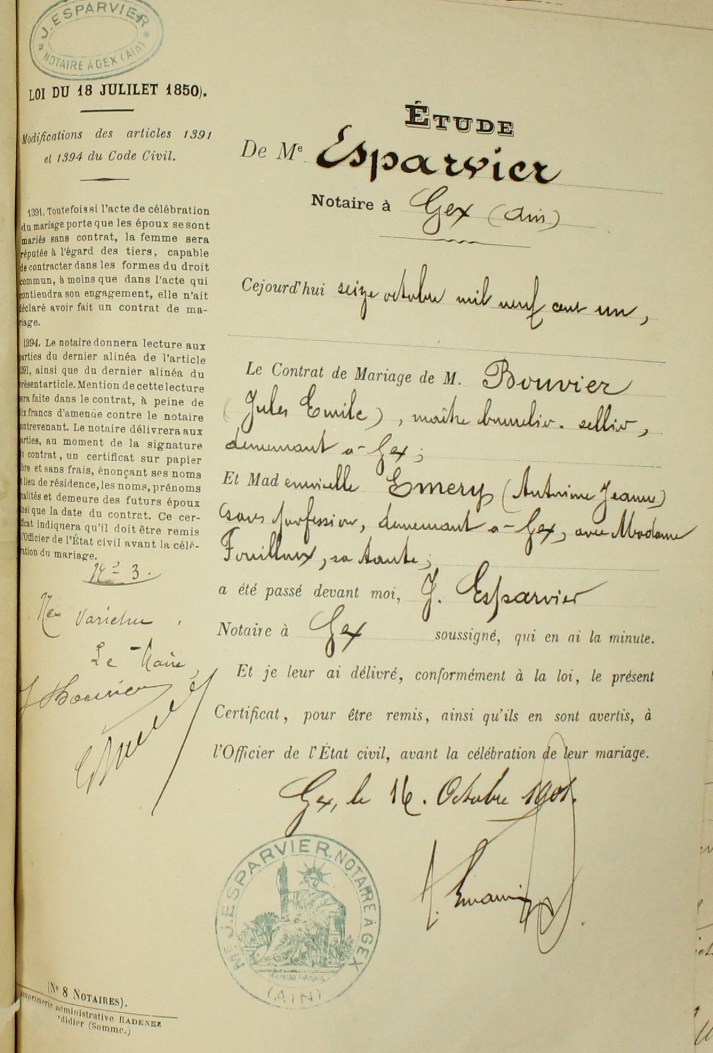 J. ESPARVIER
NOTAIRE A GEX (AIN)
LOI DU 18 JULILET 1850).
Modifications des articles 1391
et 1394 du Code Civil.
1391. Toutefois si l'acte de célébration
du mariage porte que les époux se sont
mariés sans contrat, la femme sera
réputée à l'égard des tiers, capable
de contracter dans les formes du droit
commun, à moins que dans l'acte qui
contiendra son engagement, elle n'ait
déclaré avoir fait un contrat de ma-
riage.
1394. Le notaire donnera lecture aux
parties du dernier alinéa de l'article
1391, ainsi que du dernier alinéa du
présent article. Mention de cette lecture
sera faite dans le contrat, à peine de
dix francs d'amende contre le notaire
contrevenant. Le notaire délivrera aux
parties, au moment de la signature
du contrat, un certificat sur papier
libre et sans frais, énonçant ses noms
et lieu de résidence, les noms, prénoms
qualités et demeure des futurs époux
ainsi que la date du contrat. Ce cer-
tificat indiquera qu'il doit être remis
à l'Officier de l'État civil avant la célé-
bration du mariage.
No 3.
Ne Varietur,
Le Maire,
J Bouvier
ÉTUDE
De Me Esparvier
Notaire à Gex (Ain)
Cejourd'hui seize octobre mil neuf cent un,
Le Contrat de Mariage de M. Bouvier
(Jules Emile), maître bourrelier-sellier,
demeurant à Gex;
Et Mademoiselle Emery (Antoinine Jeanne)
sans profession, demeurant à Gex, avec Madame
Fouilloux, sa tante;
a été passé devant moi, J. Esparvier
Notaire à Gex soussigné, qui en ai la minute.
Et je leur ai délivré, conformément à la loi, le présent
Certificat, pour être remis, ainsi qu'ils en sont avertis, à
l'Officier de l'État civil, avant la célébration de leur mariage.
Gex, le 16. Octobre 1901.
Me J. ESPARVIER, NOTAIRE A GEX
(AIN)
(N° 8 NOTAIRES).
Imprimerie administrative RADENEZ
Montdidier (Somme.)